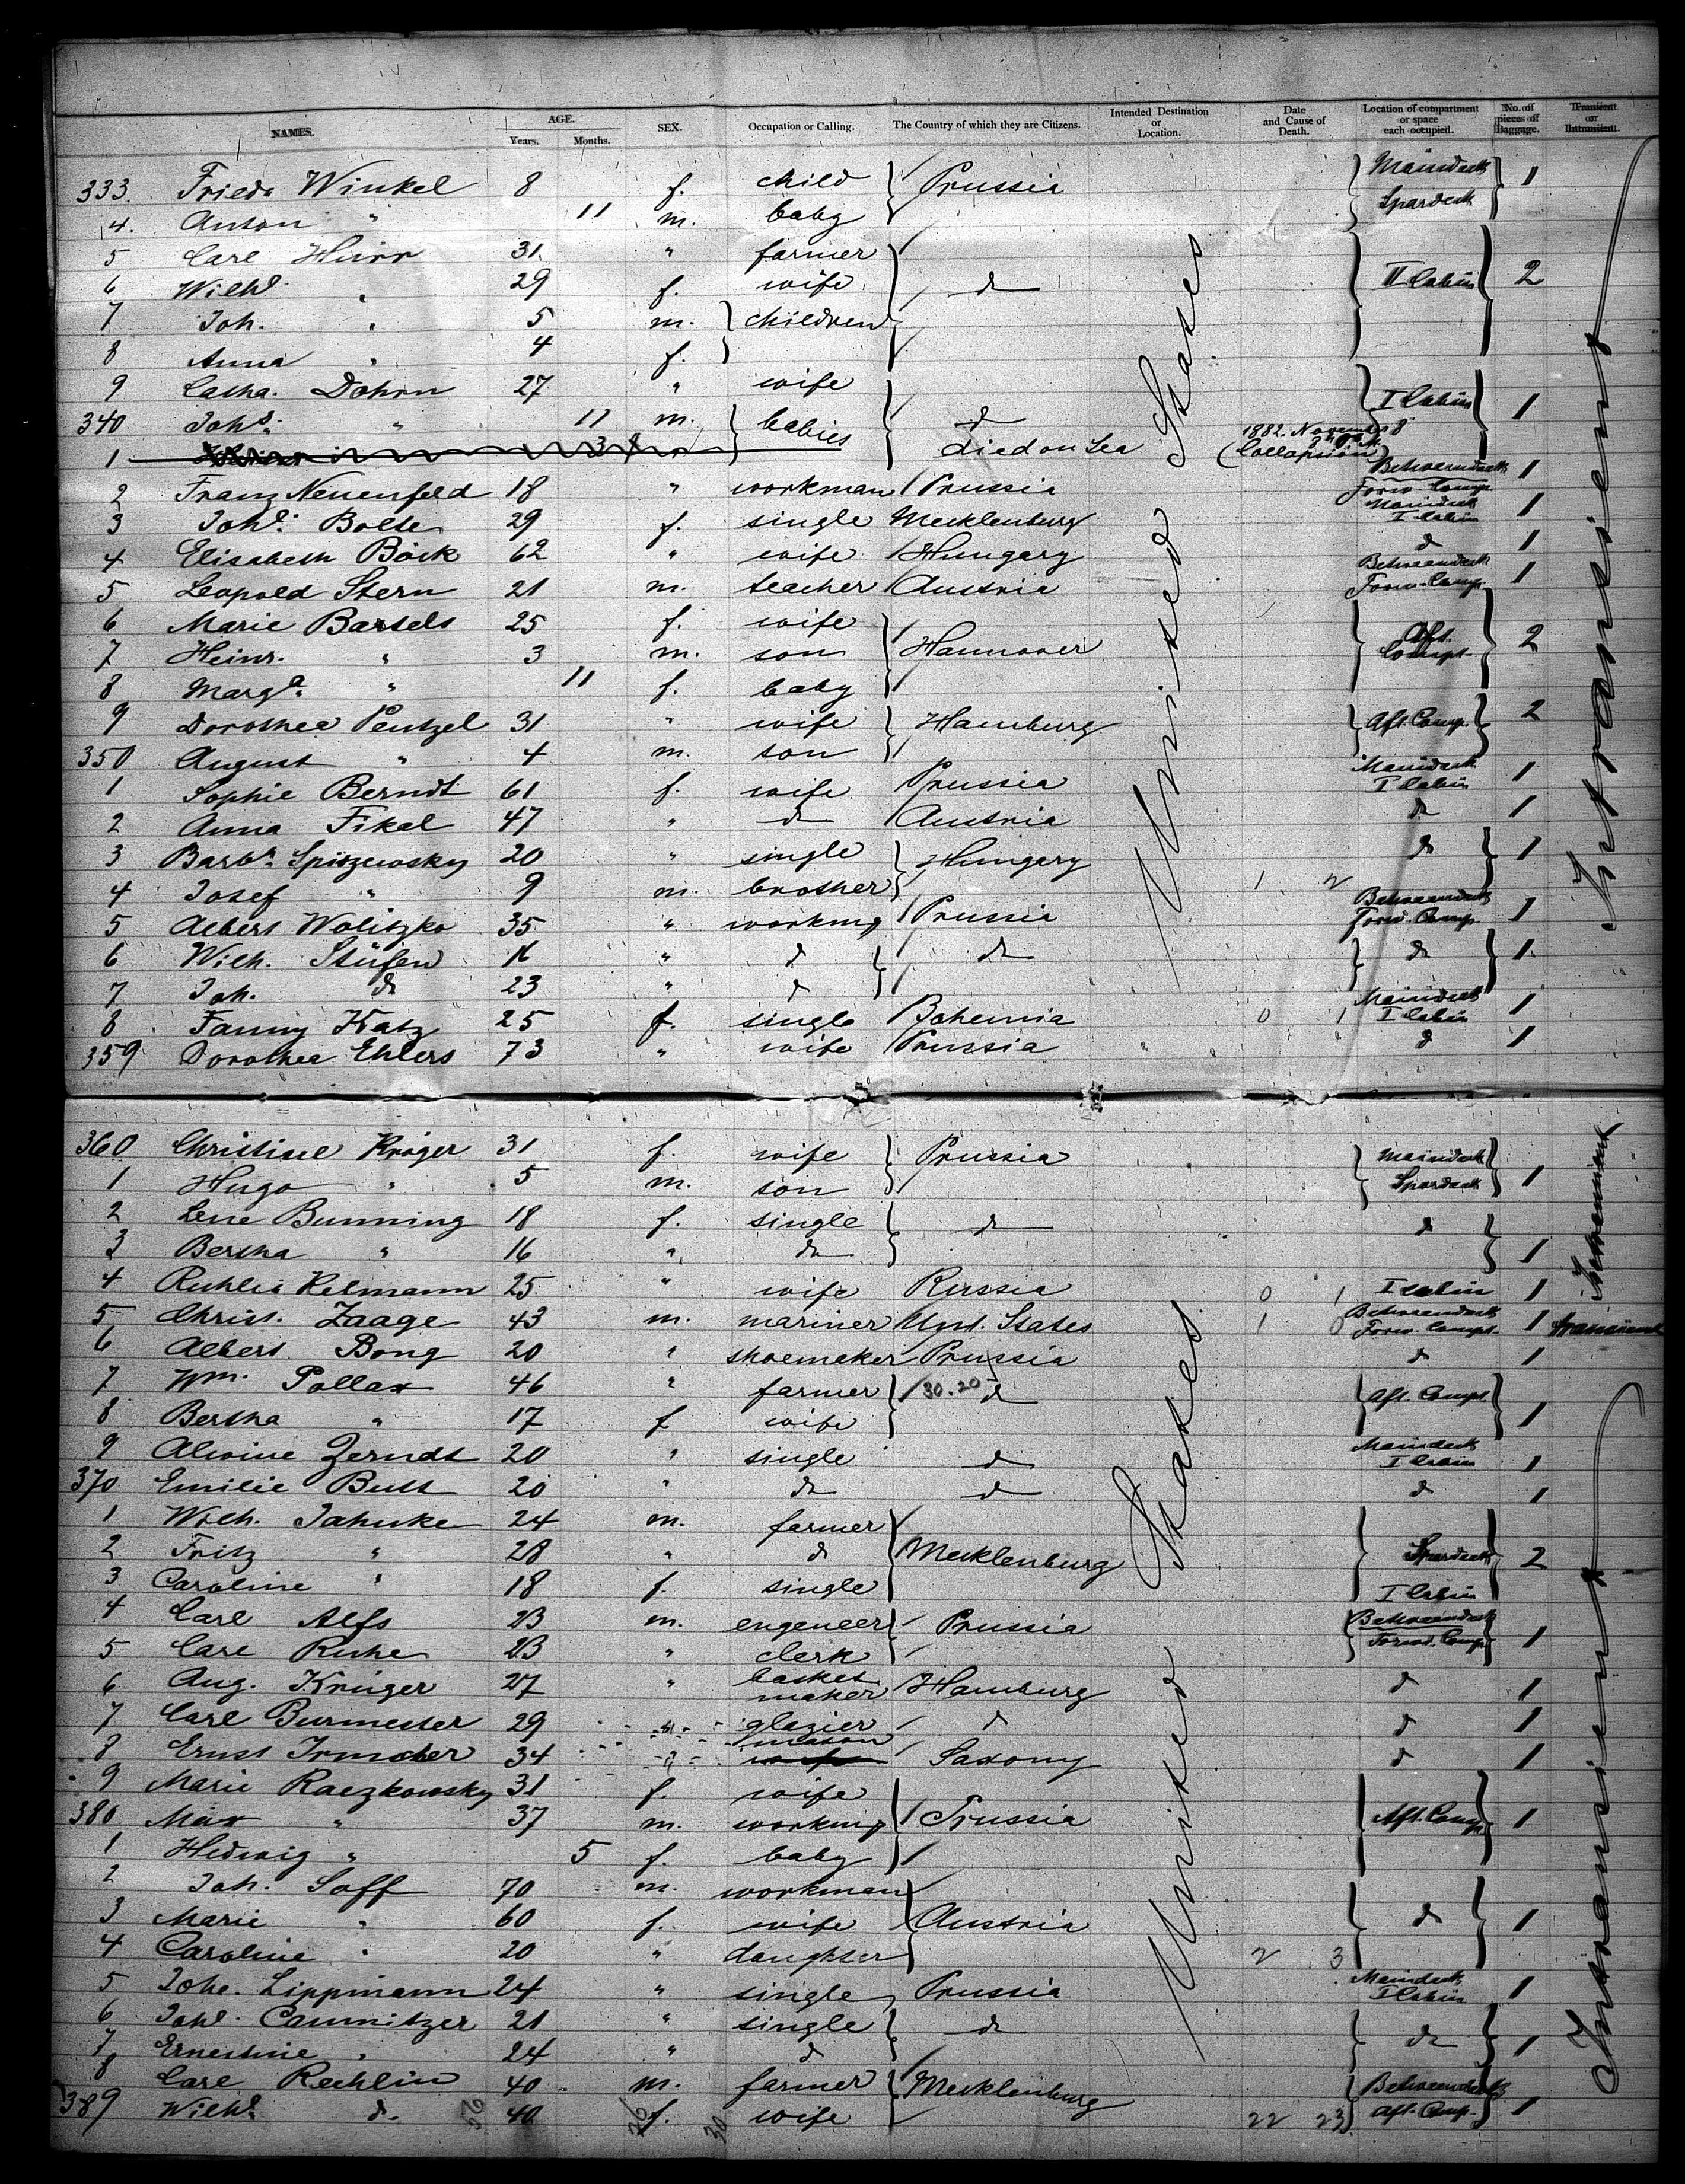 NAMES. AGE. Years. Months. SEX. Occupation or Calling. The Country of which they are Citizens. Intended Destination or Location. Date and Cause of Death. Location of compartment or space each occupied. No. of pieces of Baggage. Transient or Intransient.
333. Frieda Winkel 8 f. child Prussia Maindeck Spardeck 1
4. Anton " 11 m. baby
5 Carl 31 " farmer
6 Wilh. " 29 f. wife do II Cabin 2
7 Joh. " 5 m. children
8 Anna " 4 f.
9 Catha. Dohrn 27 " wife I Cabin 1
340 Johs. " 11 m. babies do
1 3 died on Sea 1882. November 8 (Collapsion)
2 Franz Neuenfeld 18 " workman Prussia Betweendeck Forw. Comp. 1
3 Joh. Bolte 29 f. single Mecklenburg Maindeck I Cabin 1
4 Elisabeth Böck 62 " wife Hungary do 1
5 Leopold Stern 21 m. teacher Austria Betweendeck Forw. Comp. 1
6 Marie Bartels 25 f. wife
7 Heinr. " 3 m. son Hannover Aft. Compt. 2
8 Marga. " 11 f. baby
9 Dorothea Pentzel 31 " wife Hamburg Aft. Comp. 2
350 August " 4 m. son
1 Sophie Berndt 61 f. wife Prussia Maindeck I Cabin 1
2 Anna Fikal 47 " do Austria do 1
3 Barba. 20 " single Hungary do 1
4 Josef " 9 m. brother 1 2
5 Albert Wolitzko 35 " working Prussia Betweendeck Forw. Comp. 1
6 Wilh. Stüfen 16 " do do do 1.
7 Joh. do 23 " do
8 Fanny Katz 25 f. single Bohemia 0 1 Maindeck I Cabin 1
359 Dorothea Ehlers 73 " wife Prussia do 1
United States
Intransient
360 Christine Kröger 31 f. wife Prussia Maindeck Spardeck 1
1 Hugo " 5 m. son
2 Lene Bunning 18 f. single do do
3 Bertha " 16 " do 1
4 Helmann 25 " wife Russia 0 1 I Cabin 1
5 Christ. Zaage 43 m. mariner Unit. States 1 0 Betweendeck Forw. Compt. 1 transient
6 Albert Bong 20 " shoemaker Prussia do 1
7 Wm. Pollax 46 " farmer 30.20 do Aft. Compt.
8 Bertha " 17 f wife 1
9 Alwine Zerndt 20 " single do Maindeck I Cabin 1
370 Emilie Butt 20 " do do do 1
1 Wilh. Jahnke 24 m. farmer
2 Fritz " 28 " do Mecklenburg Spardeck 2
3 Caroline " 18 f. single I Cabin
4 Carl Alfs 23 m. engeneer Prussia Betweendeck
5 Carl Ruhe 23 " clerk Forw. Comp. 1
6 Aug. Krüger 27 " basket maker Hamburg do 1
7 Carl Burmester 29 " glazier do do 1
8 Ernst Irmscher 34 " mason Saxony do 1
9 Marie Raczkowsky 31 f. wife
380 Max " 37 m. working Prussia Aft. Comp. 1
1 Hedwig " 5 f. baby
2 Joh. Soff 70 m. workman
3 Marie " 60 f. wife Austria do 1
4 Caroline " 20 " daughter 2 3
5 Johe. Lippmann 24 " single Prussia Maindeck I Cabin 1
6 Joh. Camnitzer 21 " single do do
7 Ernestine " 24 " do 1
8 Carl Rechlin 40 m. farmer Mecklenburg Betweendeck
389 Wilh. do 40 f. wife 22 23 Aft. Comp. 1
United States
Intransient
Intransient